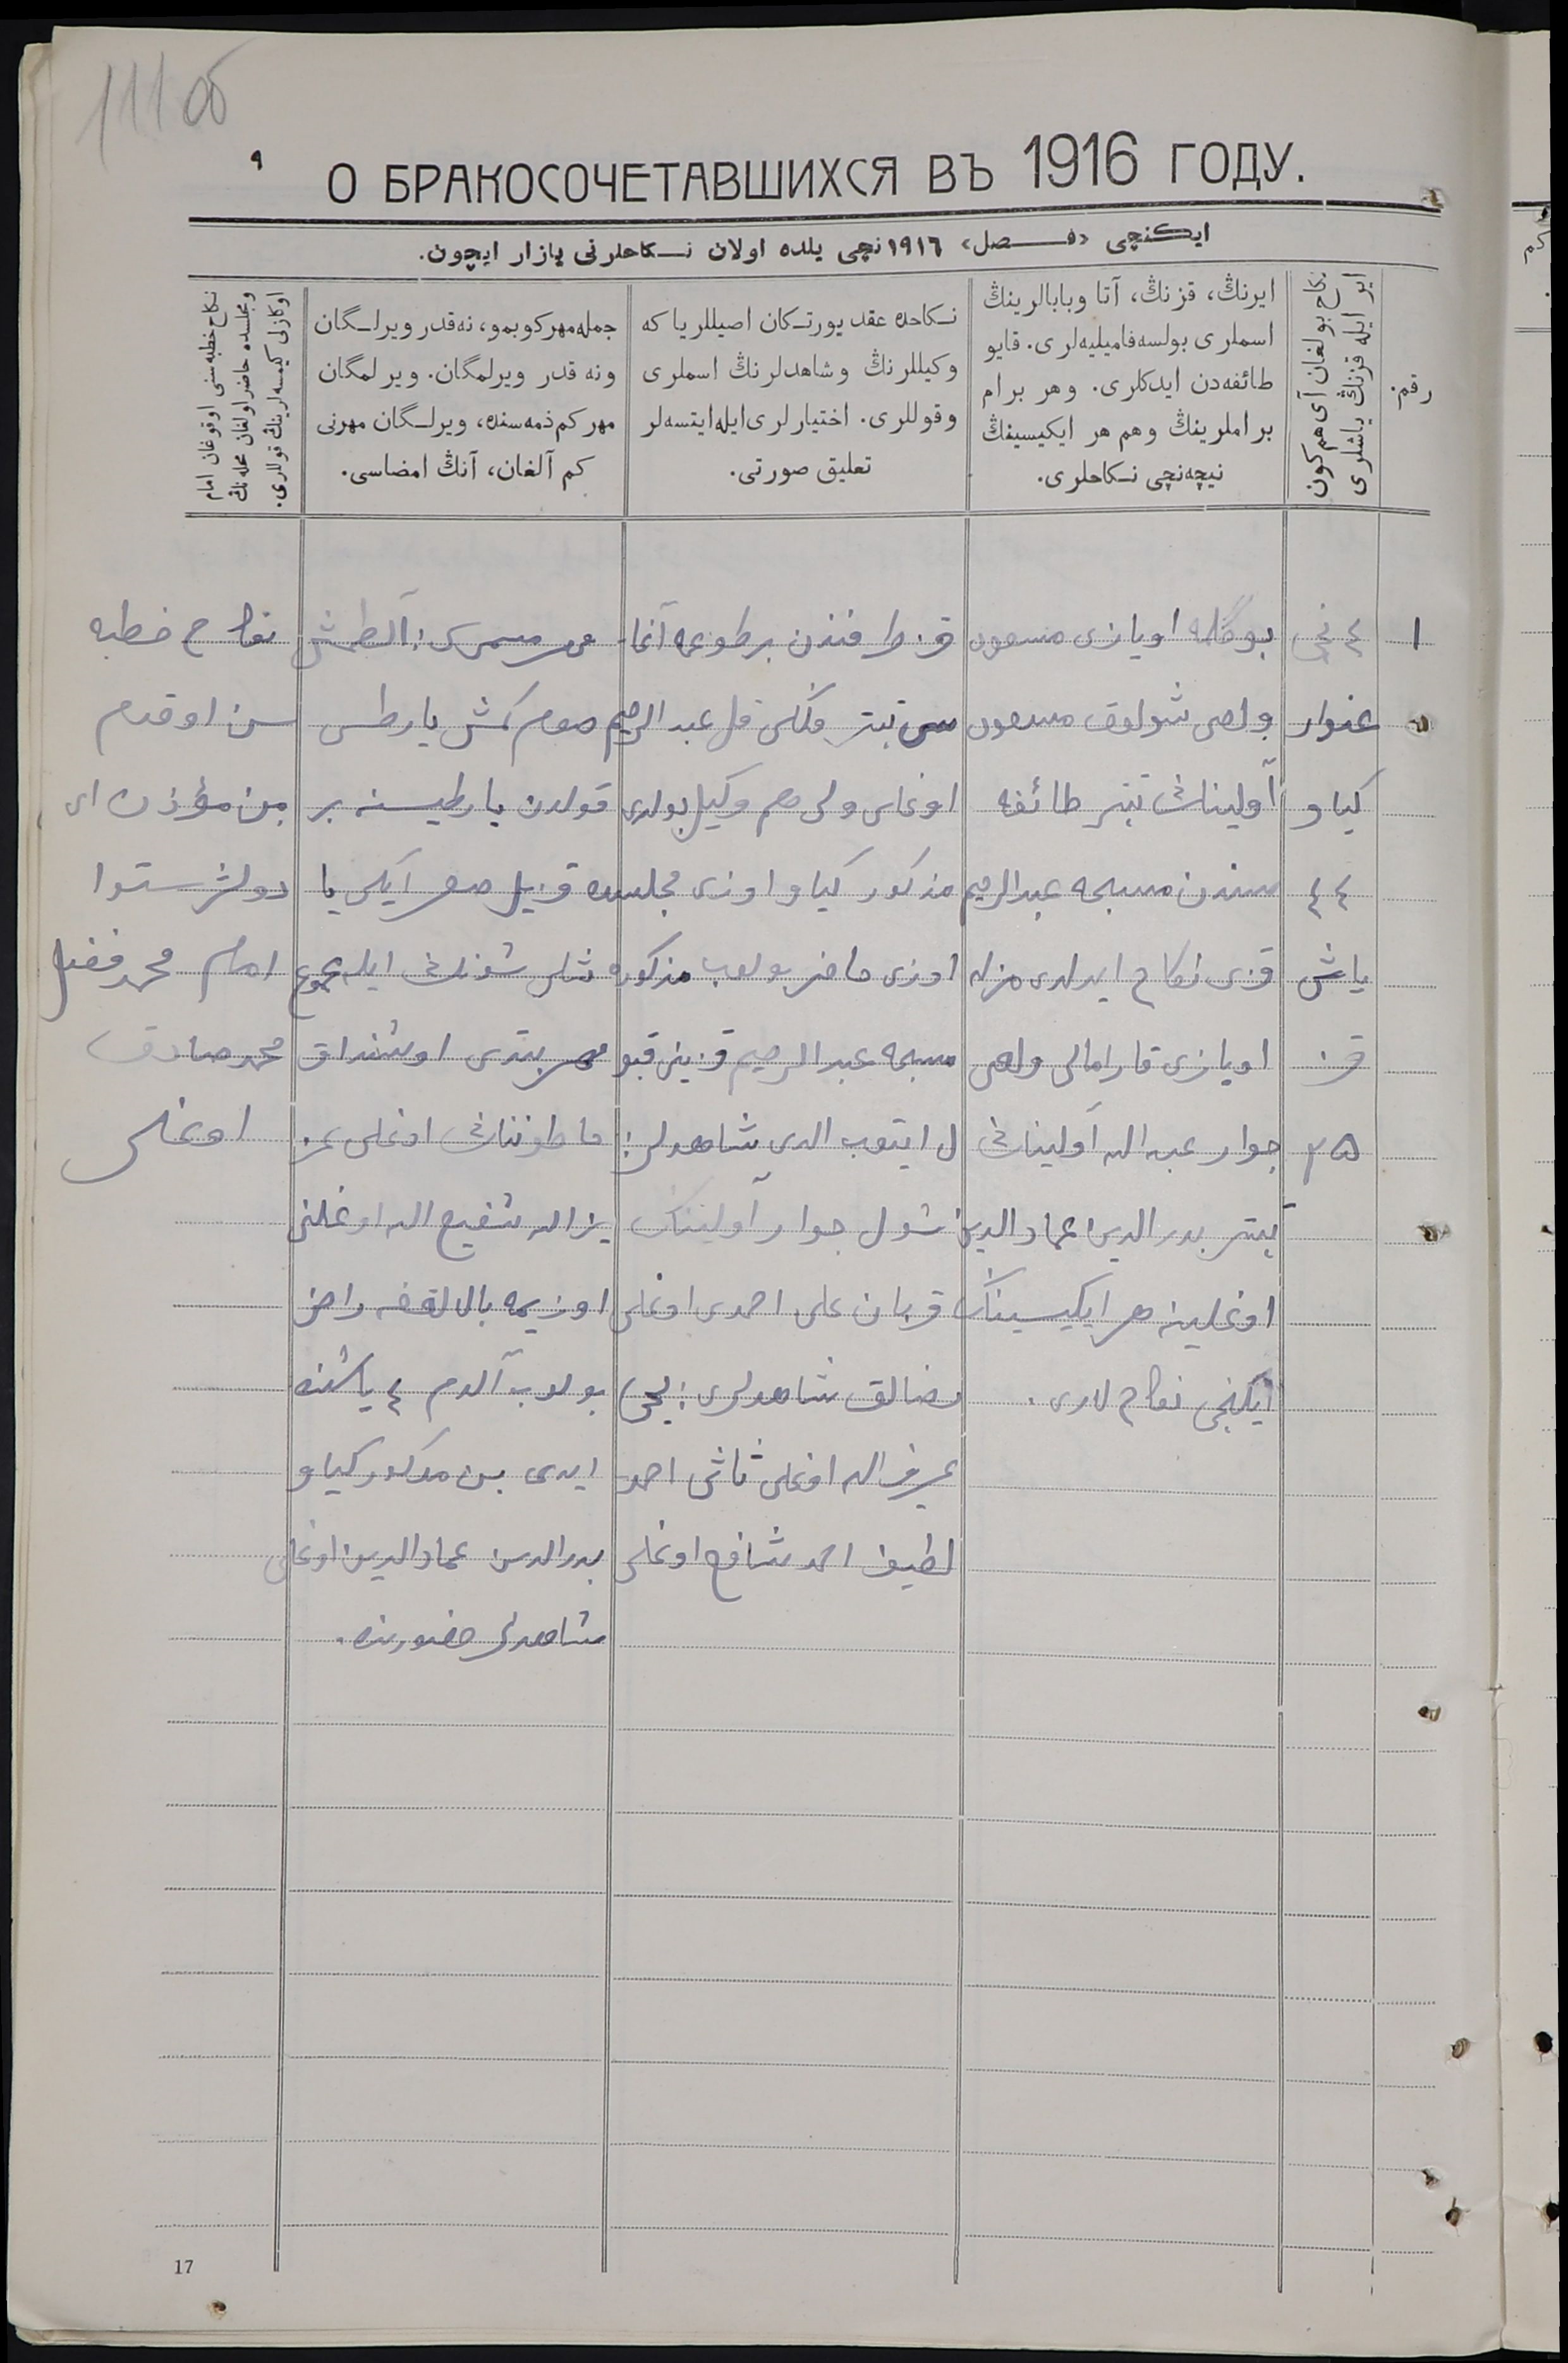 111 об
٩
О БРАКОСОЧЕТАВШИХСЯ ВЪ 1916 ГОДУ.
ایكنچی «فصل» ١٩١٦نچی یلده اولان نكاحلرنی یازار ایچون.
رقم:
نكاح بولغان آی هم كون
ایر ایله قزنڭ یاشلری
ایرنڭ، قزنڭ، آتا وبابالرینڭ
اسملری بولسه فامیلیه‌لری. قایو
طائفه‌دن ایدكلری. وهر برام
براملرینڭ وهم هر ایكیسینڭ
نیچه‌نچی نكاحلری.
نكاحده عقد یورتكان اصیللر یا كه
وكیللرنڭ وشاهدلرنڭ اسملری
وقوللری. اختیارلری ایله ایتسه‌لر
تعلیق صورتی.
جمله مهر كوبمو، نه‌قدر ویرلگان
ونه قدر ویرلمگان. ویرلمگان
مهر كم ذمه‌سنده، ویرلگان مهرنی
كم آلغان، آنڭ امضاسی.
نكاح خطبه‌سنی اوقوغان امام
ومجلسده حاضر اولغان محله‌نڭ
اوكازلی كیمسه‌لرینڭ قوللری.
١
٤ نچی
غنوار
كیاو
٤٤
یاش
قز
٢٥
بوگلمه اویازی مسعود
ولصی شولوق مسعود
آولیناڭ تپتر طائفه
سندن مسبحه عبدالرحیم
قزی نكاح ایدلدی مزله
اویازی قارامالی ولصی
جوار عبدالله آولیناڭ
تپتر بدرالدین عمادالدین
اوغلینه هر ایكیسینڭ
ایكنچی نكاح لاری.
قز طرفندن برطوعمه آغا
سی تپتر عبدالرحیم
اوغلی ولی هم وكیل بولدی
مذكور كیاو اوزی مجلسده
اوزی حاضر بولوب مذكوره
مسبحه عبدالرحیم قزینی قبو
ل ایتوب الدی شاهدلر:
شول جوار آولیننڭ
قربان علی احمدی اوغلی
شاهدلری: یحیی
اوغلی احمد
لطیف احمد شافع اوغلی
مهر مسمی: آلطمش
صوم كمش یارطسی
قولدن یارطیسنه بر
قزیل صغر ایكی یا
شلی شوندڭ ایله مجموع
مهر بتدی اوشنداق
خاطوننڭ اوغلی
شفیع الله اوغلنی
اوزیمه بالالقغه راضی
بولوب آلدم ٤ یاشنده
ایدی بن مذكور كیاو
بدرالدین عمادالدین اوغلی
شاهدلر حضورنده.
نكاح خطبه
سن اوقدم
بن مؤذن ای
امام محمد فضل
محمد صادق
اوغلی
17